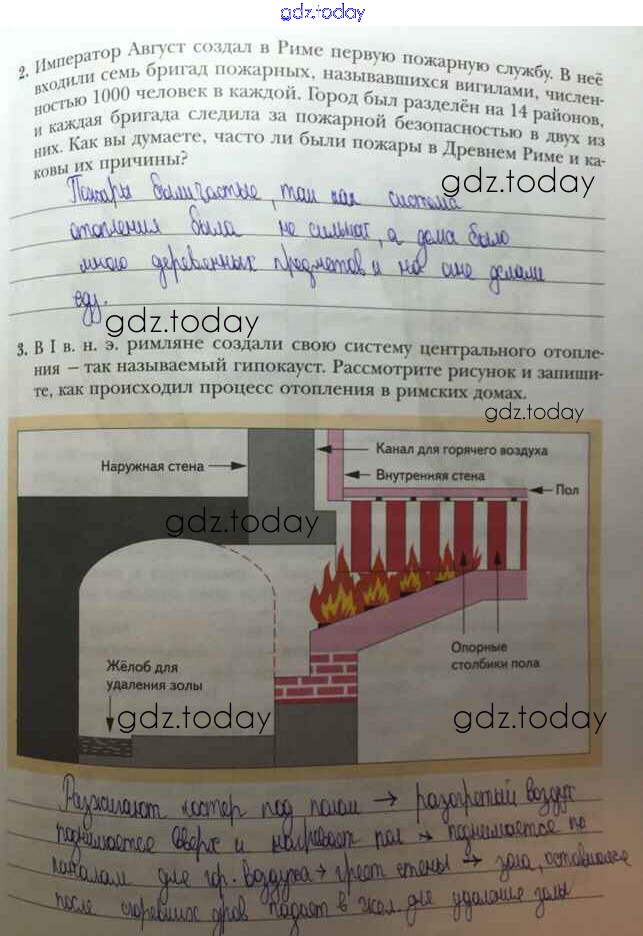 gdz.today
2. Император Август создал в Риме первую пожарную службу. В неё
входили семь бригад пожарных, называвшихся вигилами, числен-
ностью 1000 человек в каждой. Город был разделён на 14 районов,
и каждая бригада следила за пожарной безопасностью в двух из
них. Как вы думаете, часто ли были пожары в Древнем Риме и ка-
ковы их причины?
Пожары были частые, так как система
gdz.today
отопления была не сильная, а дома было
много деревянных предметов и на огне делали
еду.
gdz.today
3. В I в. н. э. римляне создали свою систему центрального отопле-
ния – так называемый гипокауст. Рассмотрите рисунок и запиши-
те, как происходил процесс отопления в римских домах.
gdz.today
Наружная стена
Канал для горячего воздуха
Внутренняя стена
Пол
gdz.today
Опорные
столбики пола
Жёлоб для
удаления золы
gdz.today
gdz.today
Разжигают костер под полом → разогретый воздух
поднимается вверх и нагревает пол → поднимается по
каналам для гор. воздуха → греет стены → зола, оставшаяся
после сгоревших дров падает в жел. для удаления золы